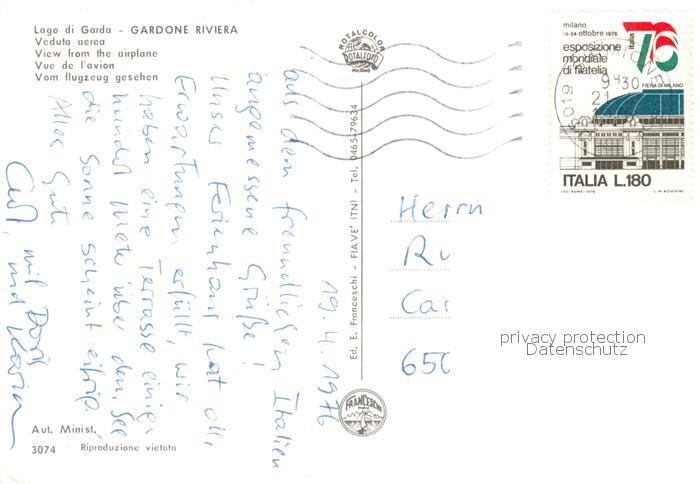 Lago di Garda - GARDONE RIVIERA
Veduta aerea
View from the airplane
Vue de l'avion
Vom flugzeug gesehen
ROTALCOLOR
ROTALFOTO
MILANO
milano
14-24 ottobre 1976
esposizione
mondiale
di filatelia
italia 76
FIERA DI MILANO
ITALIA L.180
I.P.S.-ROMA-1976
9 30
21
19.4.1976
aus dem freundlichen Italien
angemessene Grüße!
Unser Ferienhaus hat alle
Erwartungen erfüllt, wir
haben eine Terrasse einige
hundert Meter über dem See
die Sonne scheint eifrig.
Alles Gute
Carl, mit Doris
und Karin
Ed. E. Franceschi - FIAVE' (TN) - Tel. 0465/79634
FRANCESCHI
FIAVE
Herrn
Ru
Car
650
privacy protection
Datenschutz
Aut. Minist.
3074 Riproduzione vietata